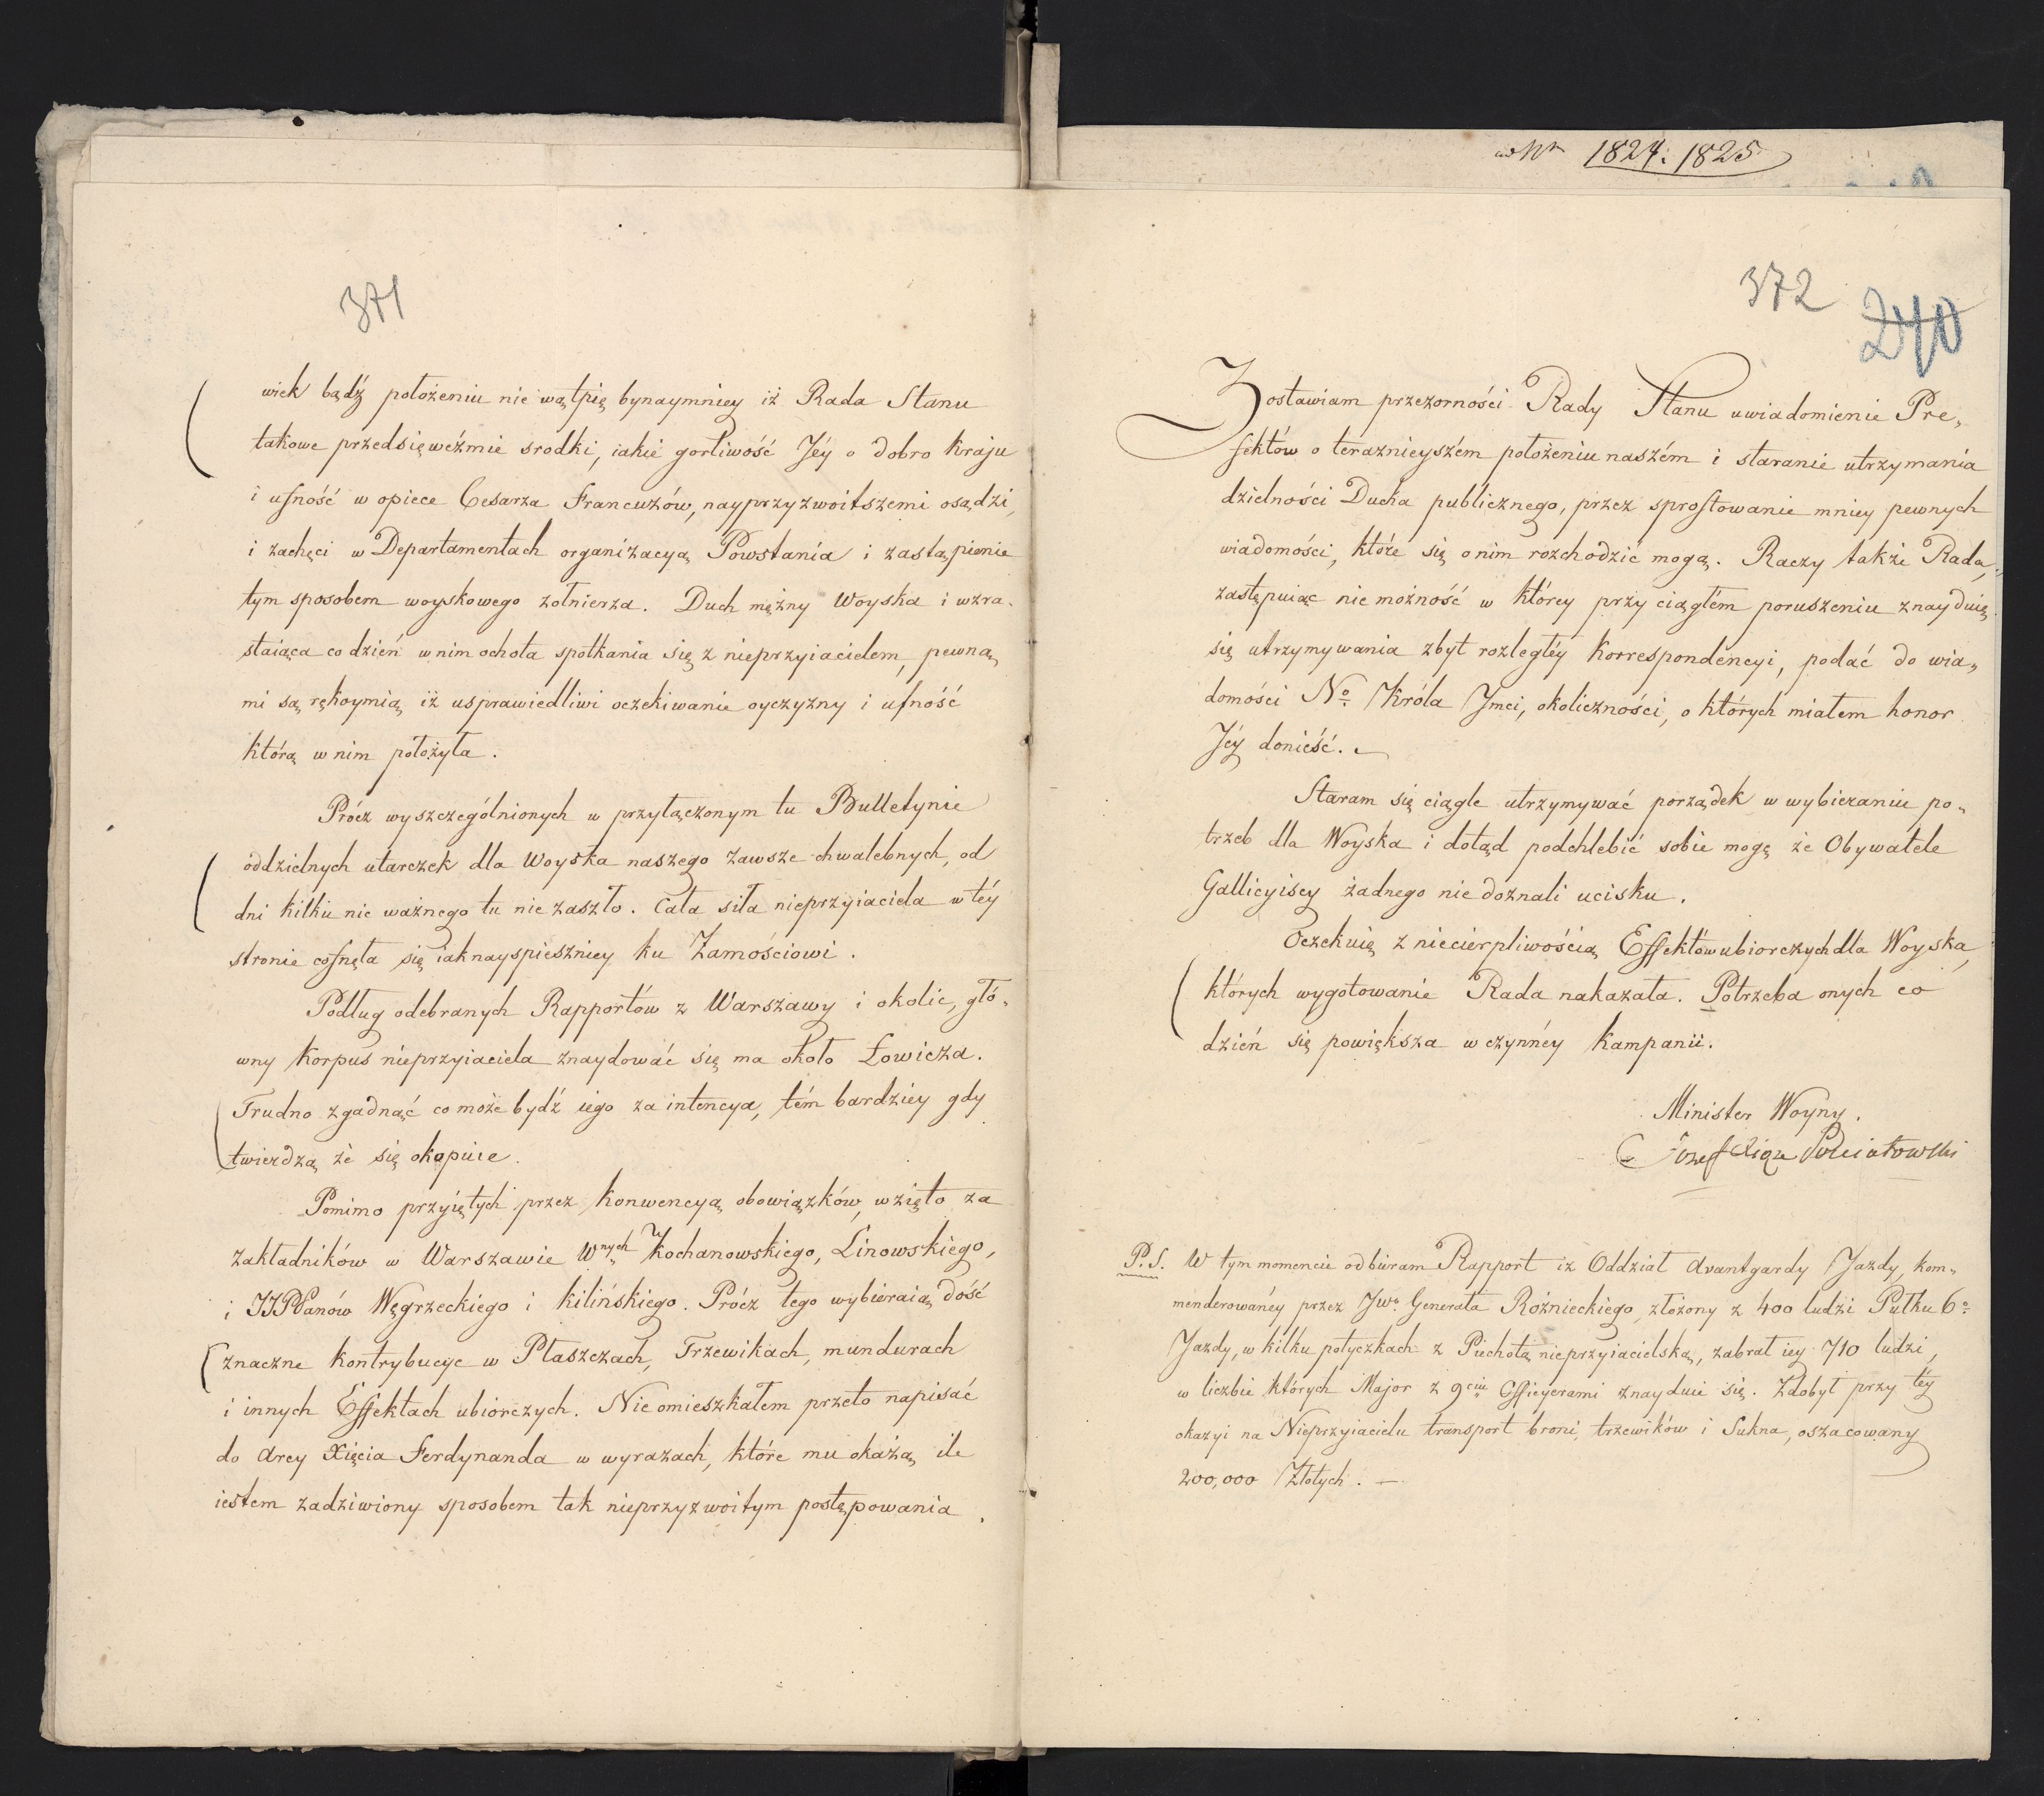 371
wiek bądź położeniu nie wątpię bynaymniey iż Rada Stanu
takowe przedsięweźmie srodki, iakie gorliwość Jéy o dobro Kraju
i ufność w opiece Cesarza Francuzów, nayprzyzwoitszemi osądzi,
i zachęci w Departamentach organizacyą Powstania i zastąpienie
tym sposobem woyskowego żołnierza. Duch mężny Woyska i wzra„
staiąca co dzień w nim ochota spotkania się z nieprzyiacielem, pewne„
mi są rękoymią iż usprawiedliwi oczekiwanie oyczyzny i ufność
którą w nim położyła.
Prócz wyszczególnionych w przyłączonym tu Bulletynie
oddzielnych utarczek dla Woyska naszego zawsze chwalebnych, od
dni kilku nic ważnego tu nie zaszło. Cała siła nieprzyiaciela w téy
stronie cofnęła się iaknayspieszniey ku Zamościowi.
Podług odebranych Rapportów z Warszawy i okolic, głó„
wny Korpus nieprzyiaciela znaydować się ma około Łowicza.
Trudno zgadnąć co może bydź iego za intencya, tém bardziey gdy
twierdzą że się okopuie.
Pomimo przyiętych przez Konwencyą obowiązków, wzięto za
zakładników w Warszawie Wnych Kochanowskiego, Linowskiego,
i JJPPanów Węgrzeckiego i Kilińskiego. Prócz tego wybieraią dość
znaczne Kontrybucye w Płaszczach, Trzewikach, mundurach
i innych Effektach ubiorczych. Nieomieszkałem przeto napisać
do Arcy Xięcia Ferdynanda w wyrazach, które mu okażą ile
iestem zadziwiony sposobem tak nieprzyzwoitym postępowania.
ad Nm 1824. 1825
372
240
Zostawiam przezorności Rady Stanu uwiadomienie Pre„
fektów o teraznieyszém położeniu naszém i staranie utrzymania
dzielności Ducha publicznego, przez sprostowanie mniey pewnych
wiadomości, które się o nim rozchodzić mogą. Raczy także Rada,
zastępuiąc niemożność w którey przy ciągłem poruszeniu znayduię
się utrzymywania zbyt rozległéy Korrespondencyi, podać do wia„
domości No. Króla Jmci, okoliczności, o których miałem honor
Jéy donieść.
Staram się ciągle utrzymywać porządek w wybieraniu po„
trzeb dla Woyska i dotąd podchlebić sobie mogę że Obywatele
Gallicyiscy żadnego nie doznali ucisku.
Oczekuię z niecierpliwością Effektów ubiorczych dla Woyska,
których wygotowanie Rada nakazała. Potrzeba onych co
dzień się powiększa w czynnéy Kampanii.
Minister Woyny.
Józef Xiąże Poniatowski
P.S. W tym momencie odbieram Rapport iż Oddział Avantgardy Jazdy, kom„
menderowanéy przez JWo. Generała Rożnieckiego, złożony z 400 ludzi Pułku 6o.
Jazdy, w kilku potyczkach z Piechotą nieprzyiacielską, zabrał iey 710 ludzi,
w liczbie których Major z 9ciu Officyerami znayduie się. Zdobył przy téy
okazyi na Nieprzyiacielu transport broni, trzewików i Sukna, oszacowany
200,000 Złotych. —